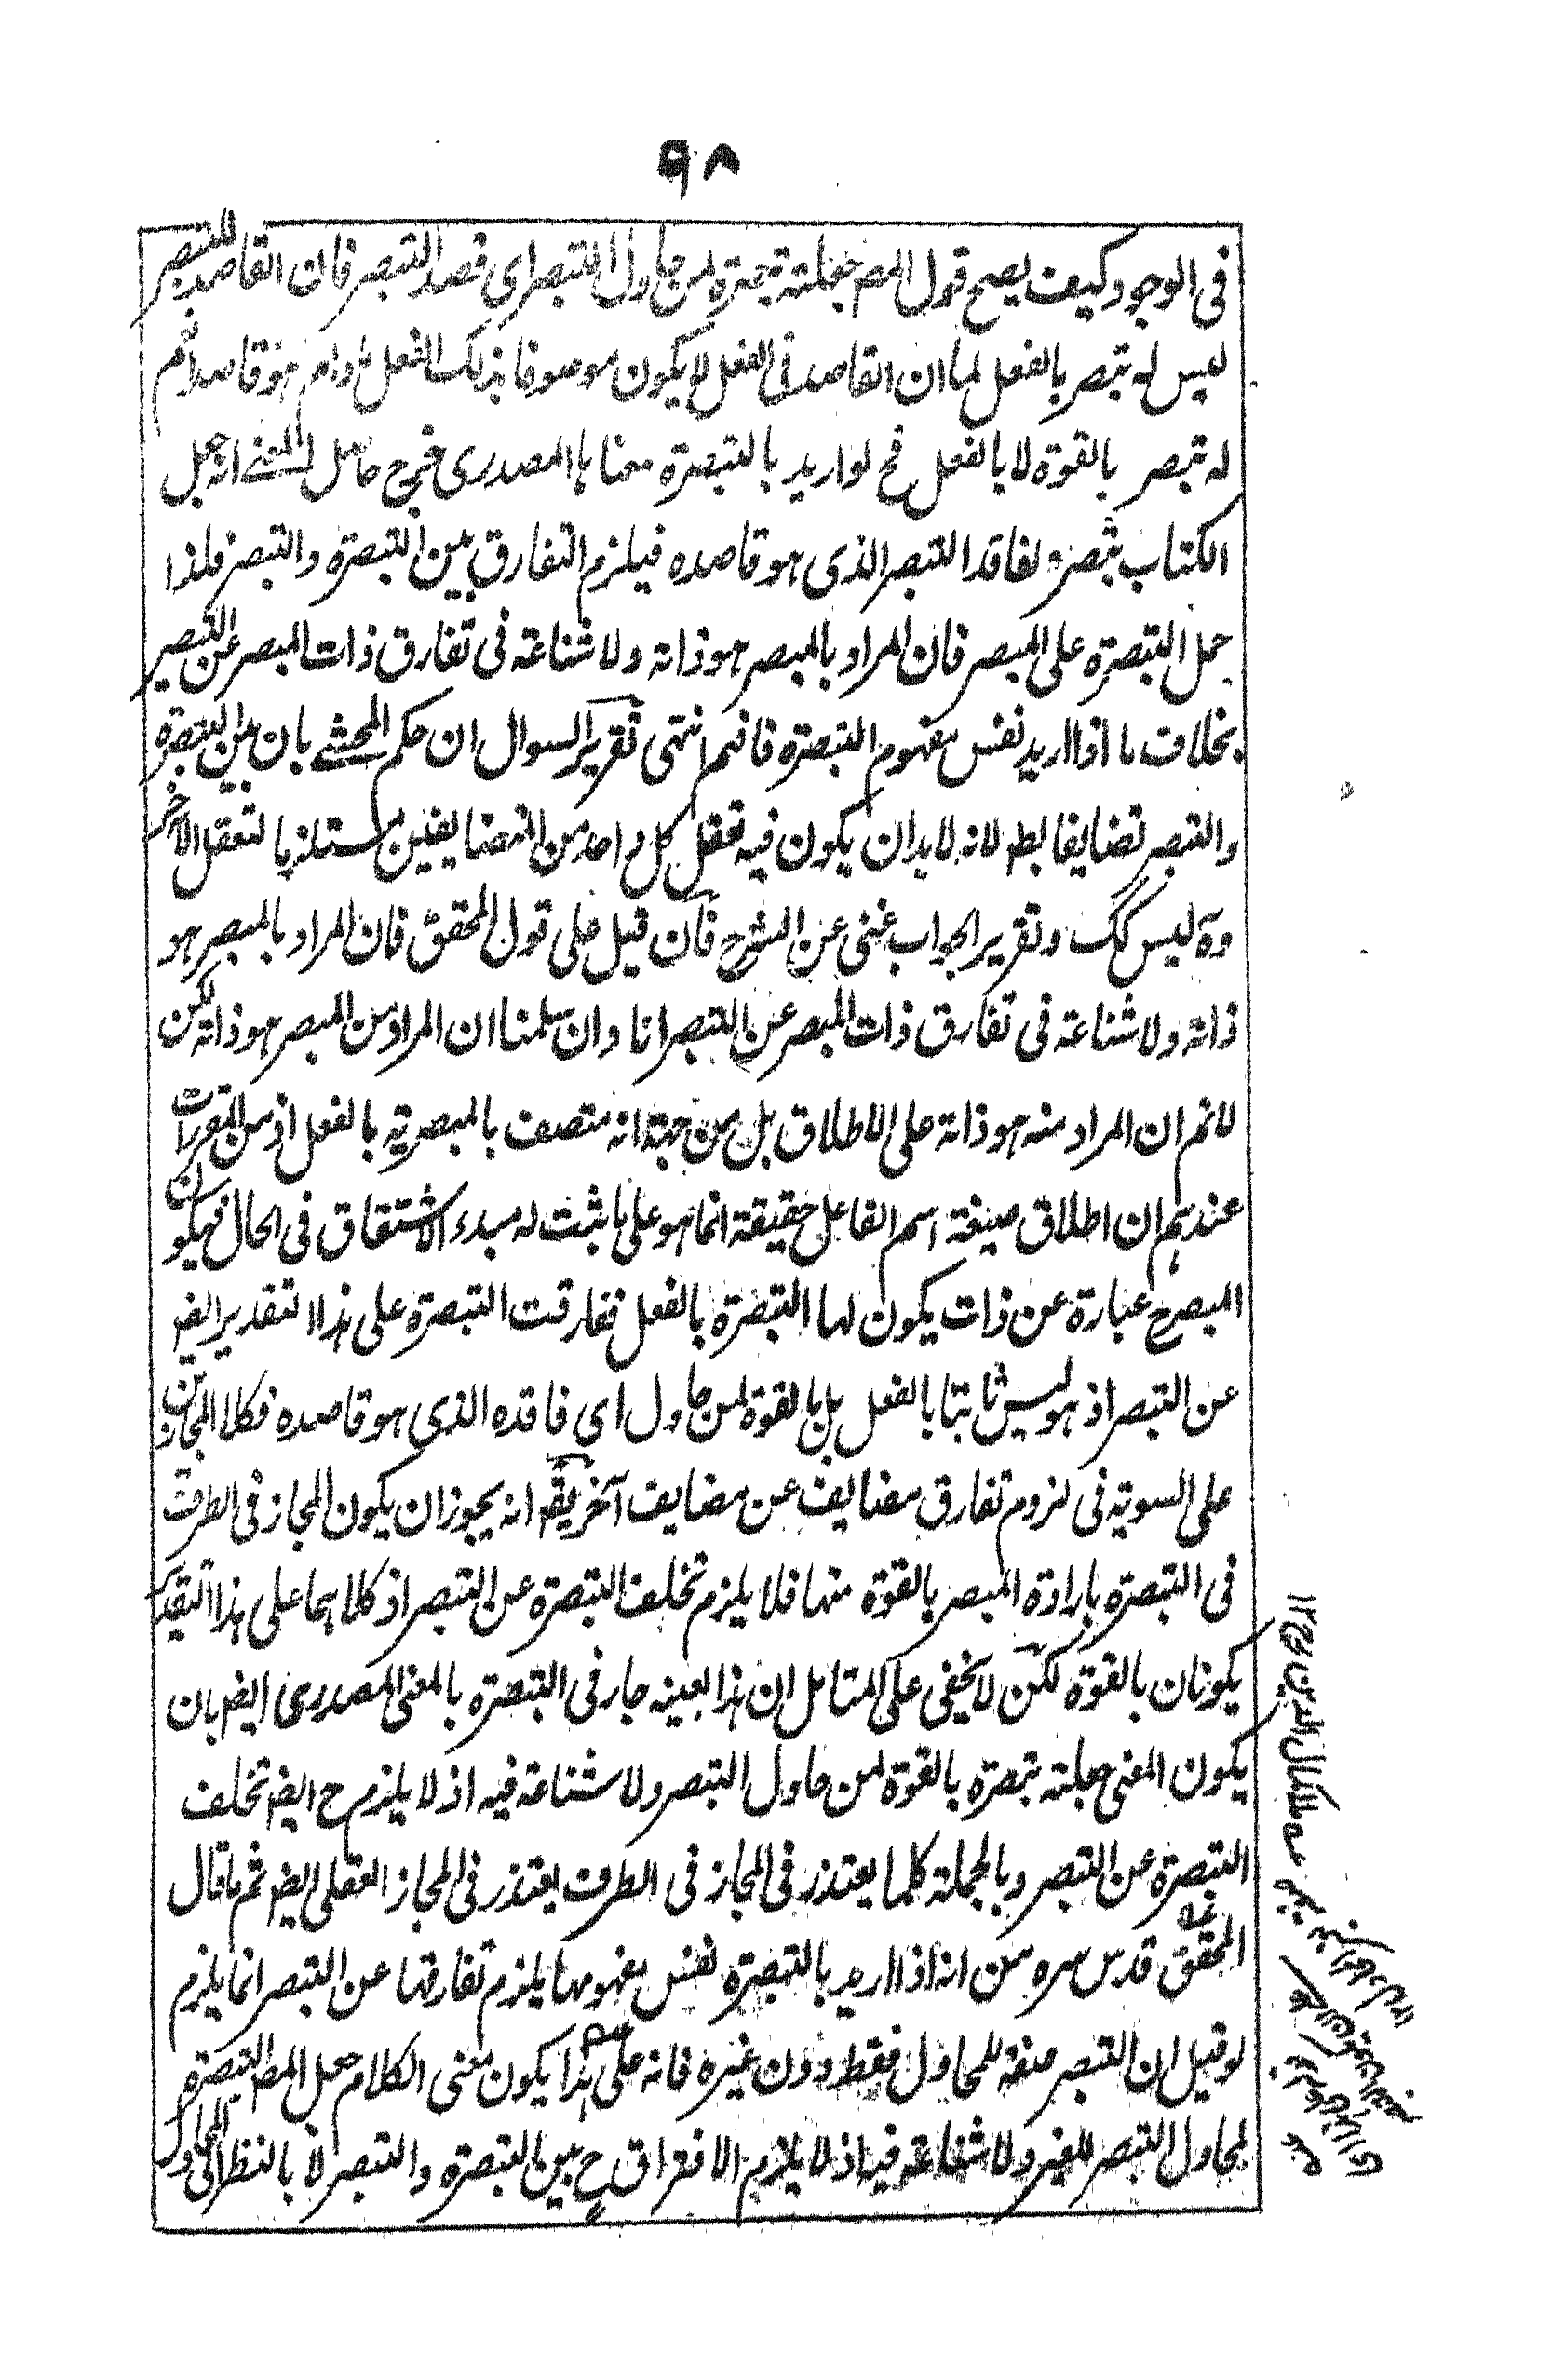 ٩٨
فى الوجود كيف يصح قول المصـ جعلته تبصرة لمن حاول التبصر اى قصد التبصر فان القاصد للتبصر
ليس له تبصر بالفعل لما ان القاصد فى الفعل لا يكون موصوفا بذلك الفعل مادام هو قاصدا ثم
له تبصر بالقوة لا بالفعل فح لو اريد بالتبصرة معناها المصدرى فمرجع حاصل المعنے انه جعل
الكتاب تبصرة لفاقد التبصر الذى هو قاصده فيلزم التفارق بين التبصرة والتبصر فلذا
حمل التبصرة على المبصر فان المراد بالمبصر هو ذاته ولا شناعة فى تفارق ذات المبصر عن التبصر
بخلاف ما اذا اريد نفس مفهوم التبصرة فافهم انتهى تقرير السوال ان حكم المحشے بان بين التبصرة
والتبصر تضايفا بط لانه لابد ان يكون فيه تعقل كل واحد من المتضايفين مستلزما لتعقل الآخر
وة ليس كك وتقرير الجواب غنى عن الشرح فان قيل على قول المحقق فان المراد بالمبصر هو
ذاته ولا شناعة فى تفارق ذات المبصر عن التبصر انا وان سلمنا ان المراد من المبصر هو ذاته لكن
لانم ان المراد منه هو ذاته على الاطلاق بل من جهة انه متصف بالمبصرية بالفعل اذ من المقررات
عندهم ان اطلاق صيغة اسم الفاعل حقيقة انما هو على ما ثبت له مبدء الاشتقاق فى الحال فيكون
المبصر ح عبارة عن ذات يكون لها التبصرة بالفعل ففارقت التبصرة على هذا التقدير ايضا
عن التبصر اذ هو ليس ثابتا بالفعل بل بالقوة لمن حاول اى فاقده الذى هو قاصده فكلا المجازين
على السوية فى لزوم تفارق مضايف عن مضايف آخر يقـ انه يجوز ان يكون المجاز فى الطرف
فى التبصرة بارادة المبصر بالقوة منها فلا يلزم تخلف التبصرة عن التبصر اذ كلاهما على هذا التقدير
يكونان بالقوة لكن لا يخفى على المتامل ان هذا بعينه جار فى التبصرة بالمعنى المصدرى ايضـ بان
يكون المعنى جعلته تبصرة بالقوة لمن حاول التبصر ولا شناعة فيه اذ لا يلزم ح ايضـ تخلف
التبصرة عن التبصر وبالجملة كلما يعتذر فى المجاز فى الطرف يعتذر فى المجاز العقلى ايضـ ثم ما قال
المحقق قدس سره من انه اذا اريد بالتبصرة نفس مفهومها يلزم تفارقها عن التبصر انما يلزم
لو قيل ان التبصر صفة للمحاول فقط دون غيره فانه على هذا يكون معنى الكلام جعل المصـ التبصرة
لمحاول التبصر للغير ولا شناعة فيه اذ لا يلزم الافتراق ح بين التبصرة والتبصر لا بالنظر الى المحاول
سه ملا كمال الدين رح ١٢